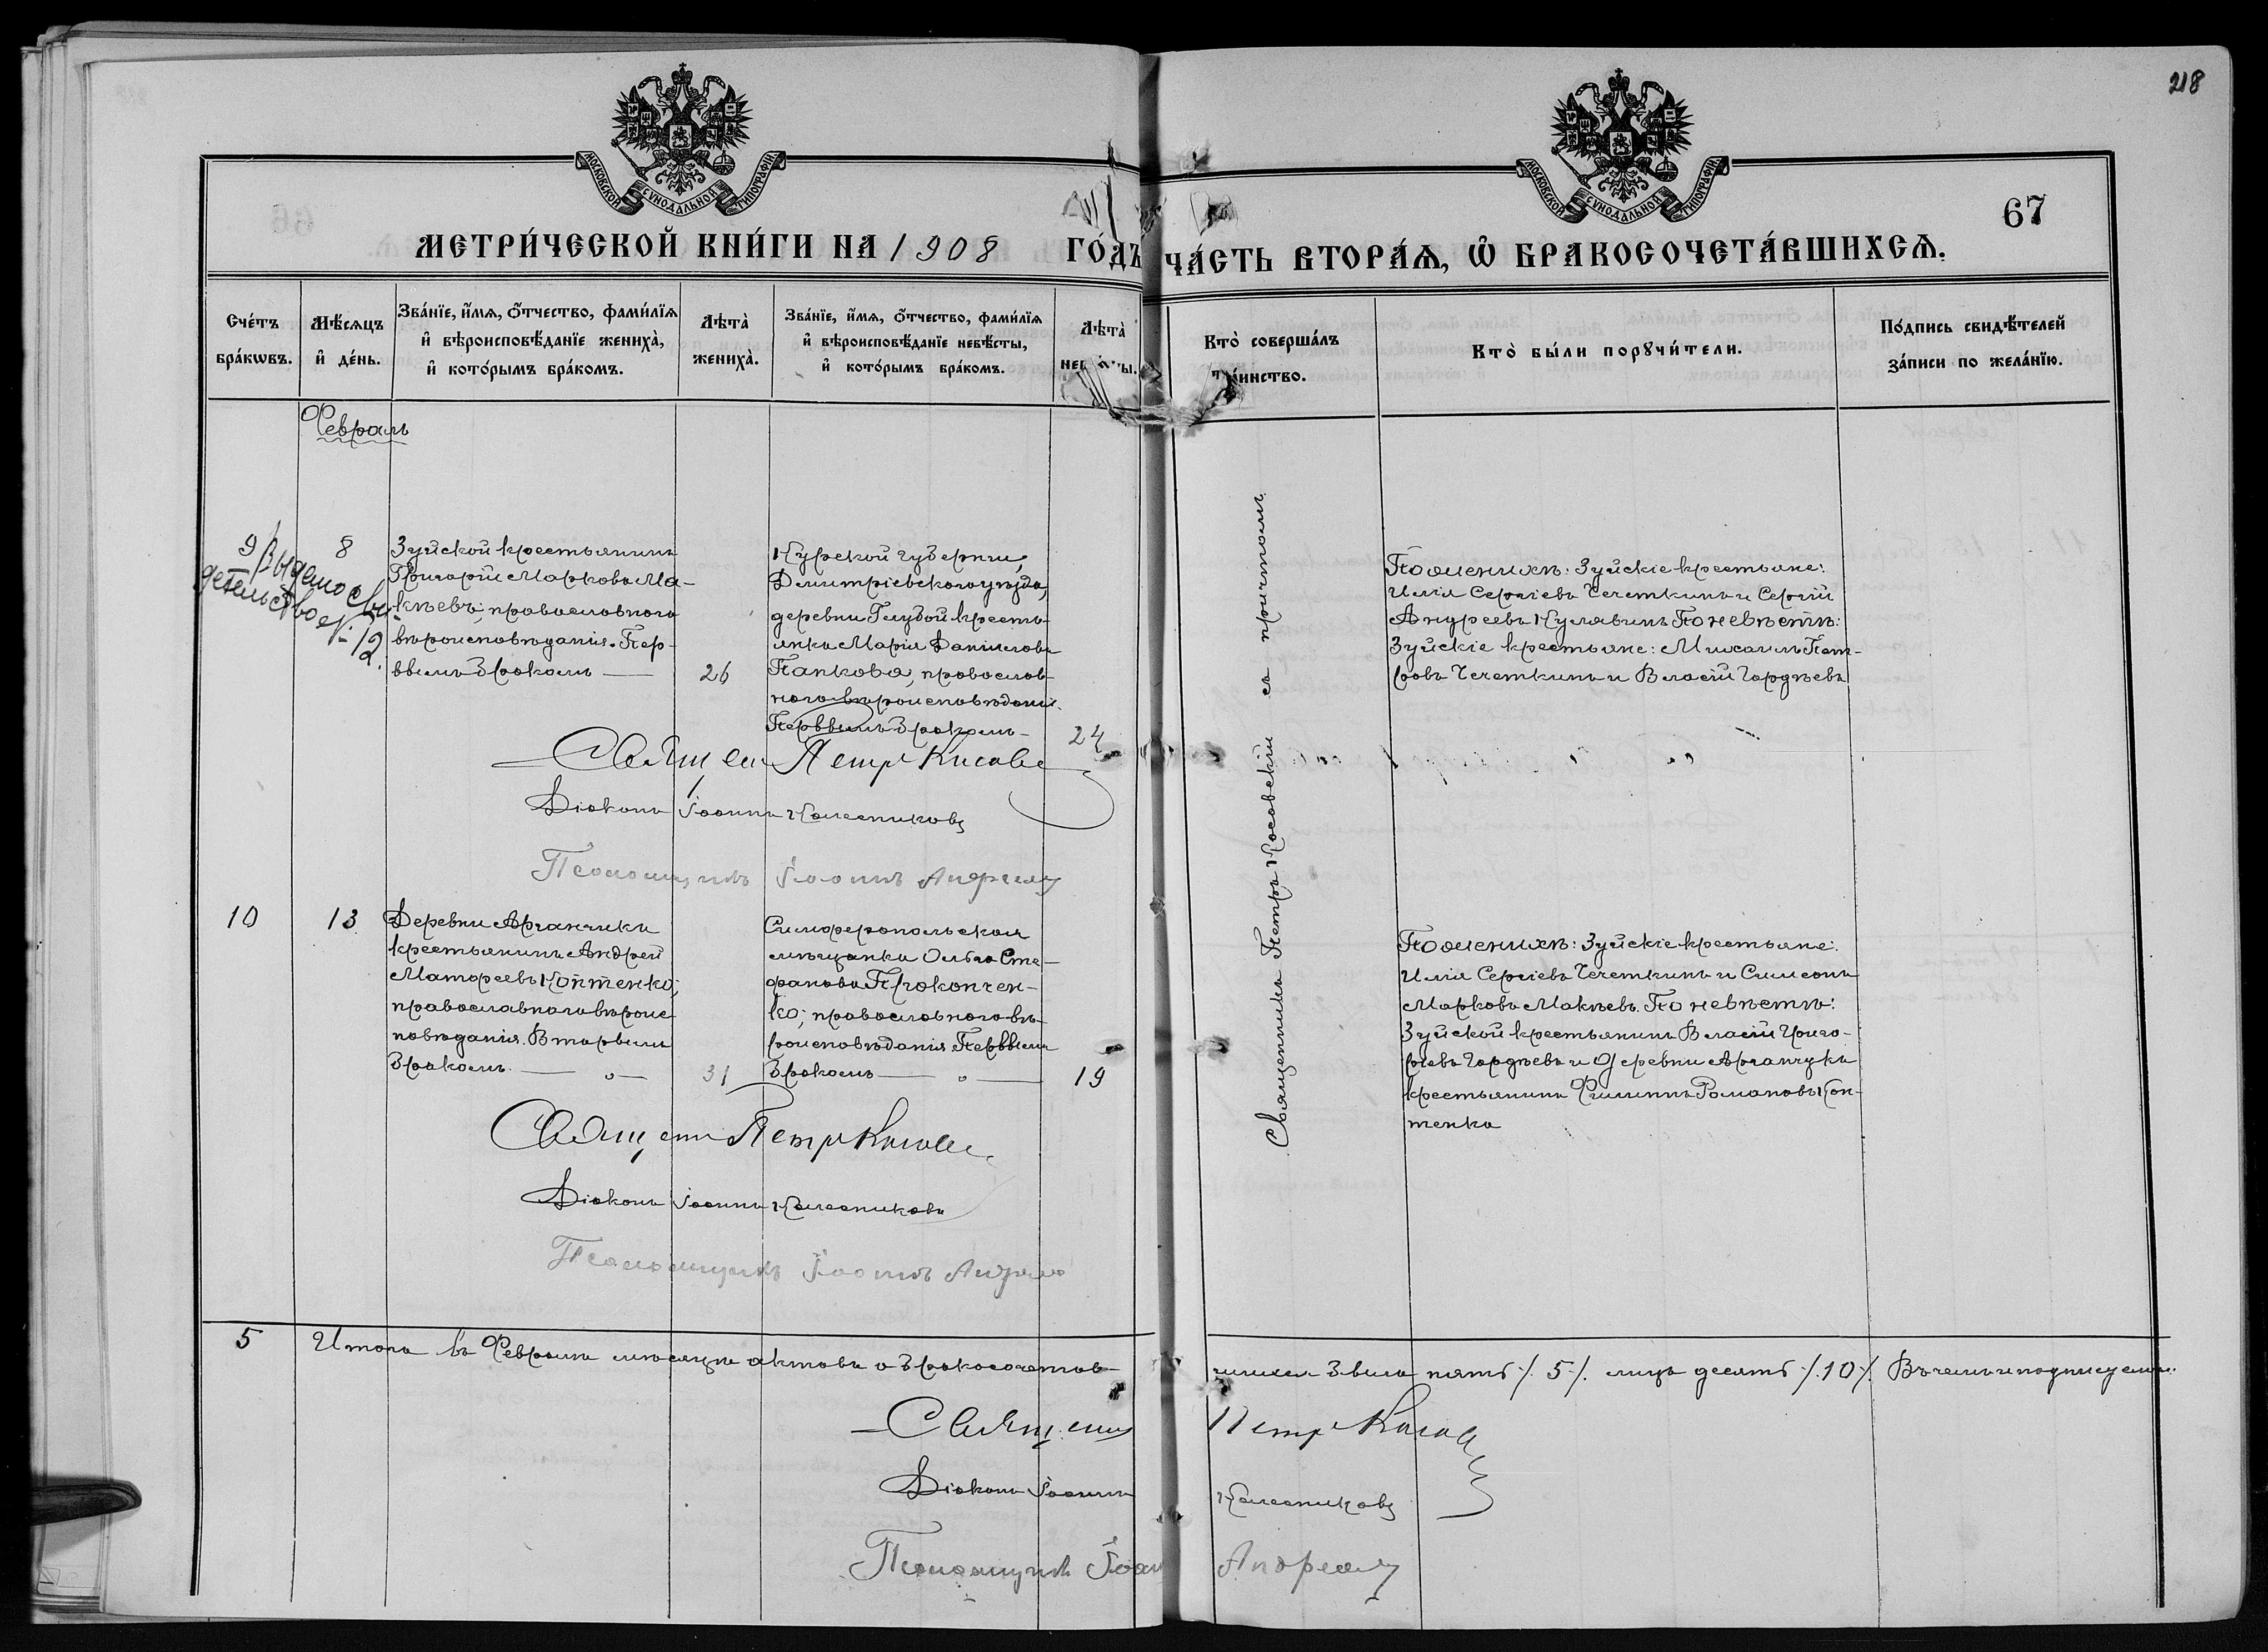 218
МОСКОВСКОЙ СѴНОДАЛЬНОЙ ТИПОГРАФІИ.
МОСКОВСКОЙ СѴНОДАЛЬНОЙ ТИПОГРАФІИ.
67
МЕТРИ́ЧЕСКОЙ КНИ́ГИ НА 1908 ГО́ДЪ ЧА́СТЬ ВТОРА́Ѧ, Ѡ҆ БРАКОСОЧЕТА́ВШИХСѦ.
Сче́тъ
бра́ковъ.
Мѣ́сяцъ
и҆ де́нь.
Зва́нїе, и҆́мя, о҆́тчество, фами́лїя
и҆ вѣроисповѣ́данїе жениха̀,
и҆ кото́рымъ бра́комъ.
Лѣта̀
жениха̀.
Зва́нїе, и҆́мя, о҆́тчество, фами́лїя
и҆ вѣроисповѣ́данїе невѣ́сты,
и҆ кото́рымъ бра́комъ.
Лѣта̀
невѣ́сты.
Кто̀ соверша́лъ
та́инство.
Кто̀ бы́ли порꙋчи́тели.
По́дпись свидѣ́телей
за́писи по жела́нїю.
Февраль
9
Выдано сви-
детельство № 12.
8
Зуйской крестьянинъ
Григорій Марковъ Ма-
кѣевъ; православнаго
вѣроисповѣданія. Пер-
вымъ бракомъ —
26
Курской губерніи,
Дмитріевского уѣзда,
деревни Голубой кресть-
янка Марія Даніилова
Папкова, православ-
наго вѣроисповѣданія.
Первымъ бракомъ —
24
Священникъ Петръ Косовскій съ причтомъ.
По женихѣ: Зуйскіе крестьяне:
Илія Сергіевъ Чечеткинъ и Сергій
Андреевъ Кулявинъ По невѣстѣ:
Зуйскіе крестьяне: Михаилъ Пет-
ровъ Чечеткинъ и Власій Гордѣевъ
Священ Петръ Косовс
Діаконъ Іоаннъ Колесниковъ
Псаломщикъ Іоаннъ
10
13
Деревни Аргинчика
крестьянинъ Андрей
Матфеевъ Коптенко;
православнаго вѣроис-
повѣданія. Вторымъ
бракомъ. — „ —
31
Симферопольская
мѣщанка Ольга Сте-
фанова Прокопчен-
ко; православнаго вѣ-
роисповѣданія Первымъ
бракомъ — „ —
19
По женихѣ: Зуйскіе крестьяне:
Илія Сергіевъ Чечеткинъ и Симеонъ
Марковъ Макѣевъ. По невѣстѣ:
Зуйской крестьянинъ Власій Григо-
рьевъ Гордѣевъ и Деревни Аргинчука
крестьянинъ Филиппъ Романовъ Коп-
тенко
Священ Петръ Косовс
Діаконъ Іоаннъ Колесниковъ
Псаломщикъ Іоаннъ
5
Итого въ Февралѣ мѣсяцѣ актовъ о бракосочетав-
шихся было пять /. 5 /. лицъ десять /. 10 /. Въ чемъ и подписуемся:
Священ Петръ Косовс
Діаконъ Іоаннъ Колесниковъ
Псаломщикъ Іоан